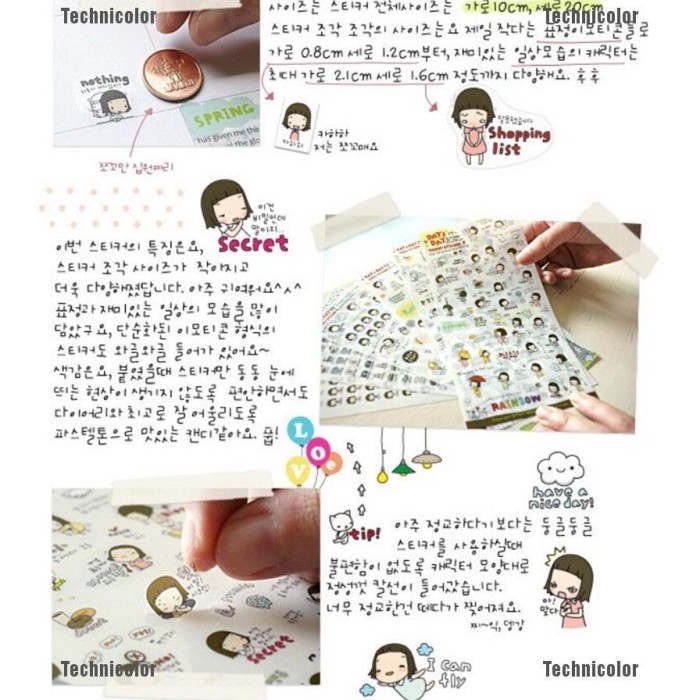 Technicolor
Technicolor
사이즈는 스티커 전체사이즈는 가로10cm, 세로20cm
스티커 조각 조각의 사이즈는요 제일 작다는 표정이모티콘들로
가로 0.8cm 세로 1.2cm부터, 재미있는 일상모습의 캐릭터는
최대 가로 2.1cm 세로 1.6cm 정도까지 다양해요. 후후
nothing
SPRING
has given me
쪼꼬만 십원짜리
카하하
저는 쪼꼬매요
잘못했습니다
Shopping
list
이건
비밀인데
말이지...
Secret
이번 스티커의 특징은요,
스티커 조각 사이즈가 작아지고
더욱 다양해졌답니다. 아주 귀여워요^^
표정과 재미있는 일상의 모습을 많이
담았구요, 단순화된 이모티콘 형식의
스티커도 와글와글 들어가 있어요~
색감은요, 붙였을때 스티커만 동동 눈에
띄는 현상이 생기지 않도록 편안하면서도
다이어리와 최고로 잘 어울리도록
파스텔톤으로 맛있는 캔디같아요. 풉!
DAY & DAY
RAINBOW
LOVE
have a
nice day!
tip!
아주 정교하다기 보다는 둥글둥글
스티커를 사용하실때
불편함이 없도록 캐릭터 모양대로
정성껏 칼선이 들어갔습니다.
너무 정교한건 떼다가 찢어져요.
찌~익, 뎅강
아!
맞다!
secret
I can
fly
Technicolor
Technicolor